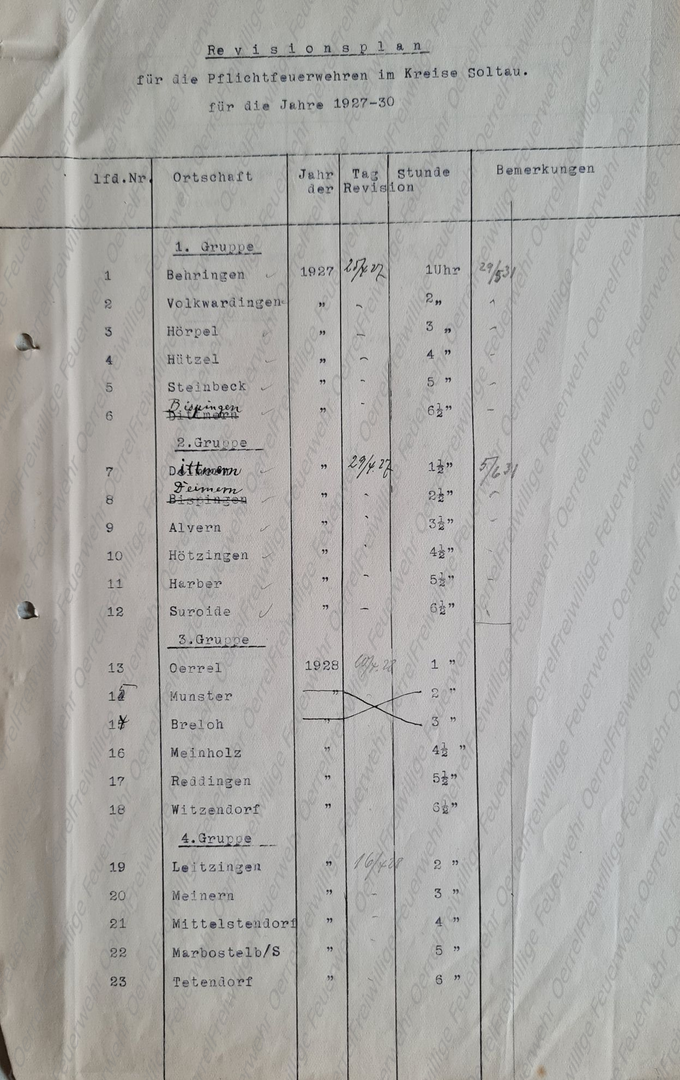 Revisionsplan
für die Pflichtfeuerwehren im Kreise Soltau.
für die Jahre 1927-30
lfd.Nr. Ortschaft Jahr Tag Stunde Bemerkungen
der Revision
1. Gruppe
1 Behringen ✓ 1927 1Uhr
2 Volkwardingen " 2„
3 Hörpel " 3 „
4 Hützel " 4 "
5 Steinbeck ✓ " 5 "
Bispingen
6 Dittmern " 6½"
2.Gruppe
7 Dittmern ✓ " 29/4.27 1½" 5/6 31
Deimern
8 Bispingen " 2½"
9 Alvern ✓ " 3½"
10 Hötzingen " 4½"
11 Harber ✓ " 5½"
12 Suroide ✓ " 6½"
3.Gruppe
13 Oerrel 1928 1 "
15 Munster " 2 "
14 Breloh " 3 "
16 Meinholz " 4½ "
17 Reddingen " 5½"
18 Witzendorf " 6½"
4.Gruppe
19 Leitzingen " 16/4 28 2 "
20 Meinern " 3 "
21 Mittelstendorf " 4 "
22 Marbostelb/S " 5 "
23 Tetendorf " 6 "
Freiwillige Feuerwehr Oerrel